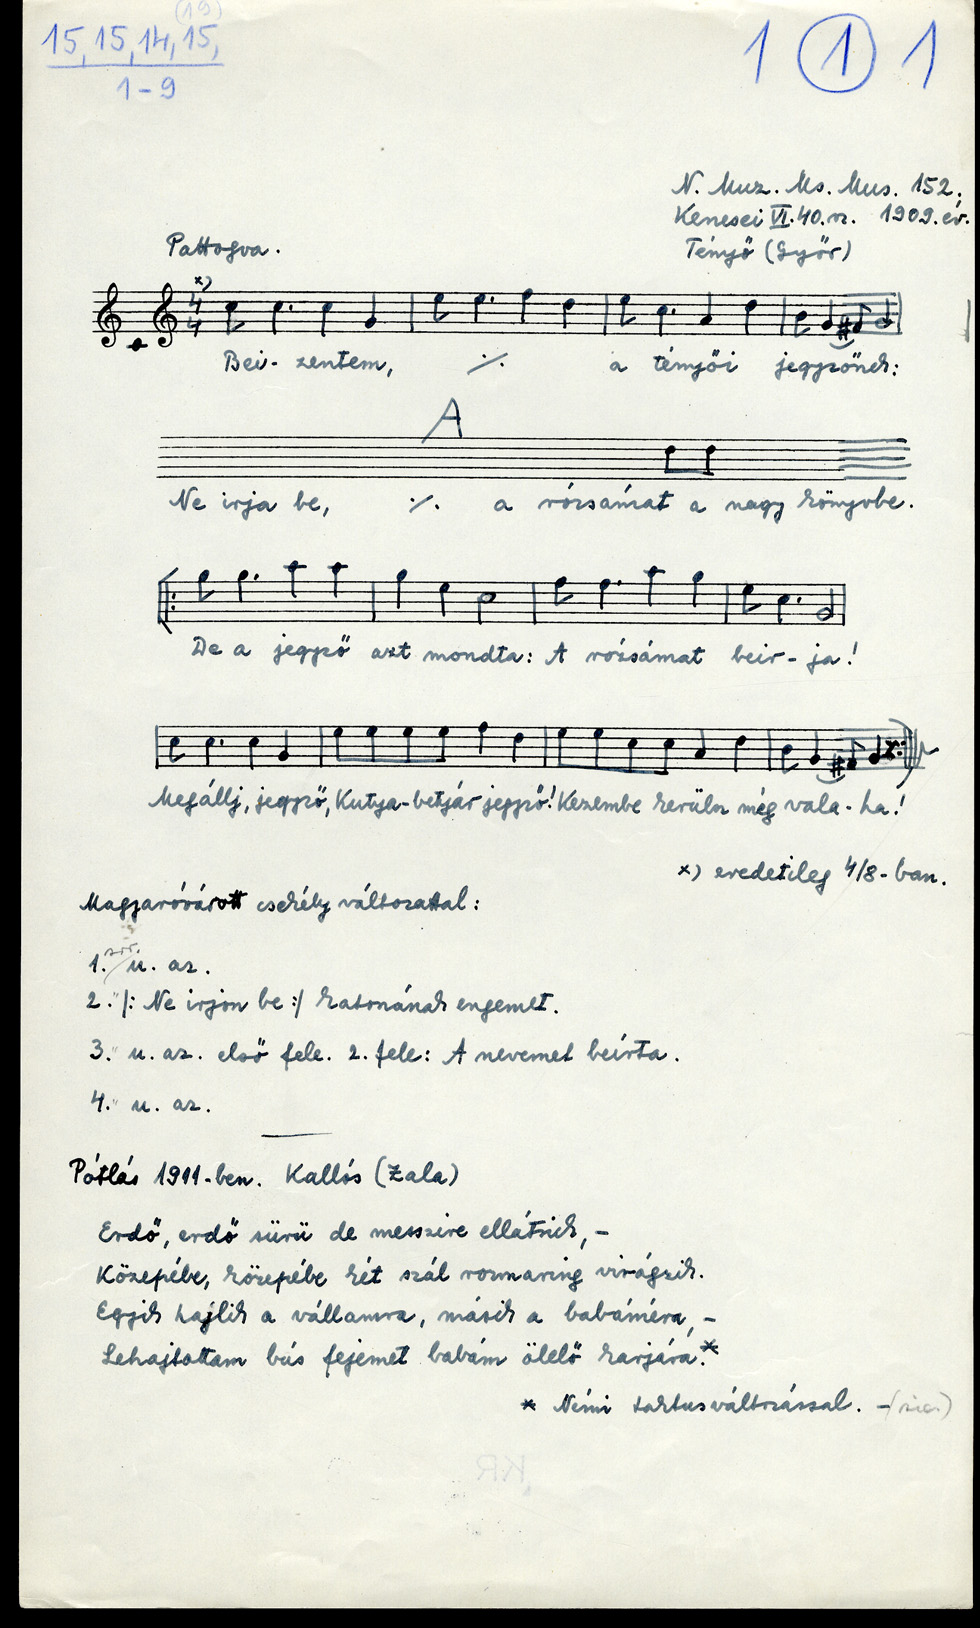 (19)
15, 15, 14, 15,
1-9
1 1 1
N. Muz. Ms. Mus. 152.
Kenesei VI. 40. sz. 1909. év.
Tényő (Győr)
Pattogva.
x)
4
4
Bei- zentem, ·/. a tényői jegyzőnek:
A
Ne irja be, ·/. a rózsámat a nagy könyvbe.
De a jegyző azt mondta: A rózsámat beir- ja!
Megállj, jegyző, Kutya-betjár jegyző! Kezembe kerülsz még vala- ha!
x) eredetileg 4/8-ban.
Magyaróvárott csekély változattal:
1. szr. u. az.
2." /: Ne irjon be :/ katonának engemet.
3." u. az. első fele. 2. fele: A nevemet beírta.
4." u. az.
Pótlás 1911-ben. Kallós (Zala)
Erdő, erdő sürü de messzire ellátszik, -
Közepébe, közepébe két szál rozmaring virágzik.
Egyik hajlik a vállamra, másik a babáméra, -
Lehajtottam bús fejemet babám ölelő karjára.*
* Némi taktusváltozással. - (sic)
KR